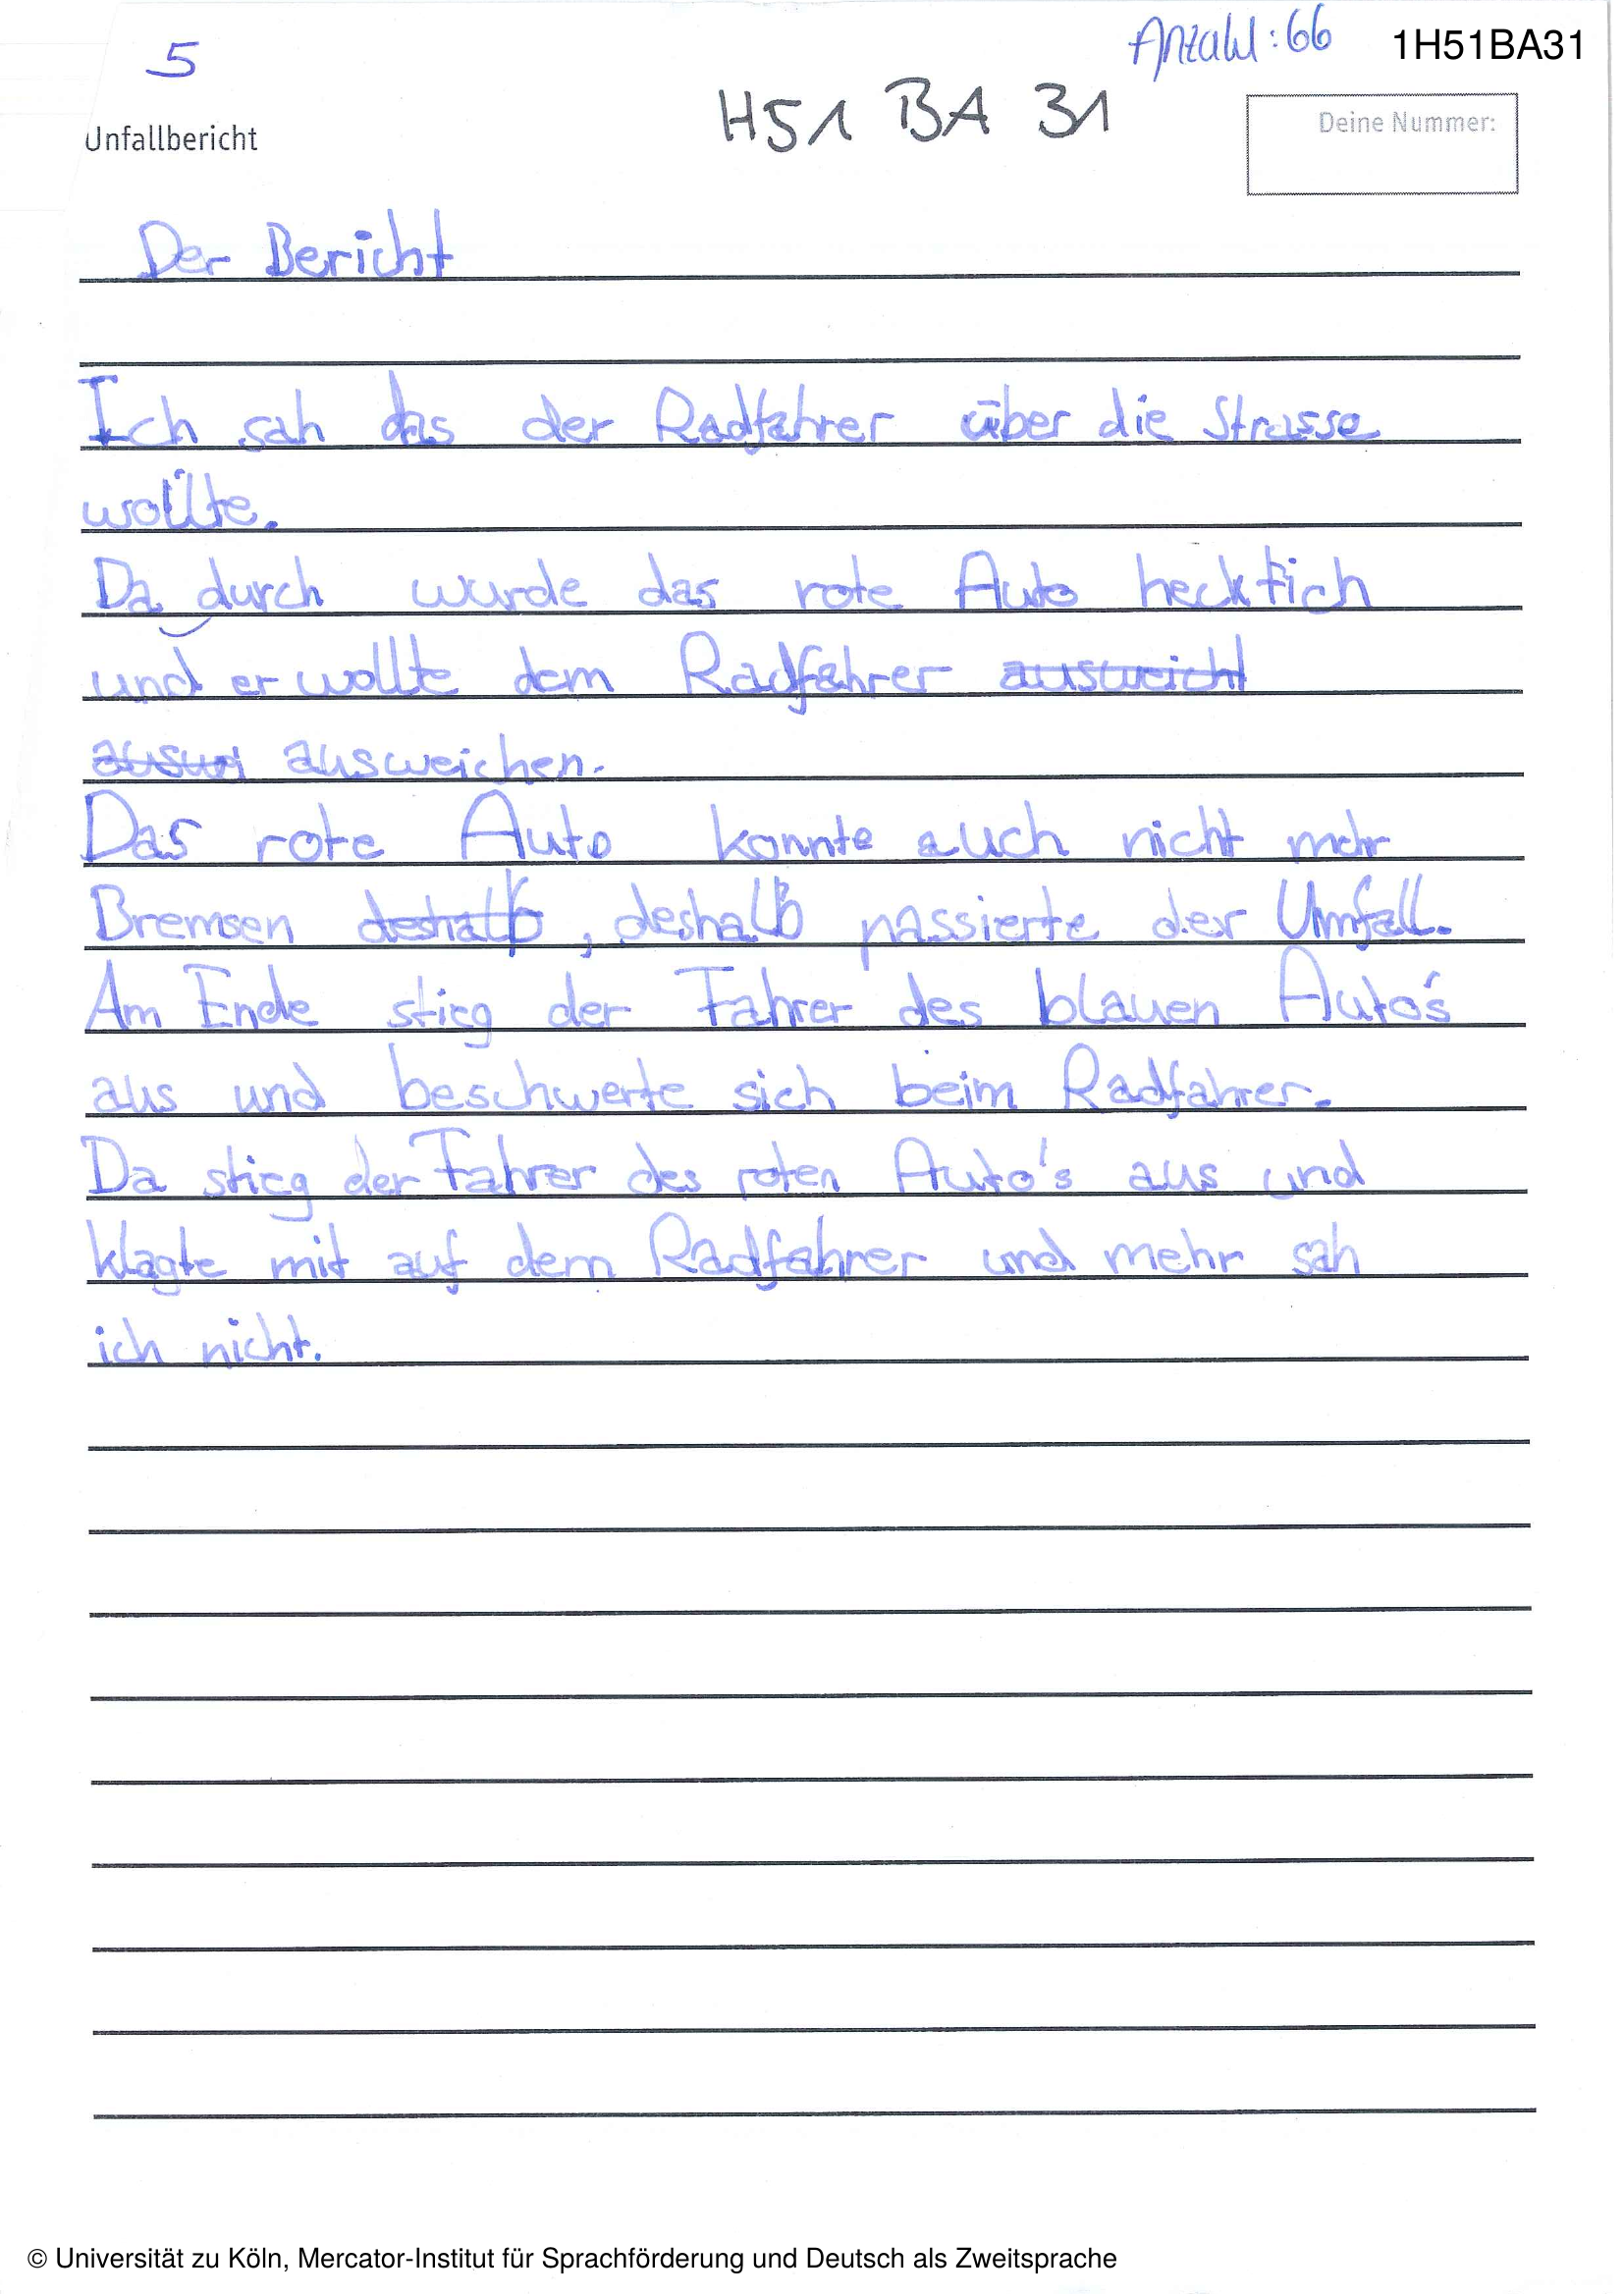 5
Anzahl: 66
1H51BA31
H51 BA 31
Deine Nummer:
Unfallbericht
Der Bericht
Ich sah das der Radfahrer über die Strasse
wollte.
Da durch wurde das rote Auto hecktich
und er wollte dem Radfahrer ausweicht
auswei ausweichen.
Das rote Auto konnte auch nicht mehr
Bremsen deshalb, deshalb passierte der Umfall.
Am Ende stieg der Fahrer des blauen Auto's
aus und beschwerte sich beim Radfahrer.
Da stieg der Fahrer des roten Auto's aus und
klagte mit auf dem Radfahrer und mehr sah
ich nicht.
© Universität zu Köln, Mercator-Institut für Sprachförderung und Deutsch als Zweitsprache